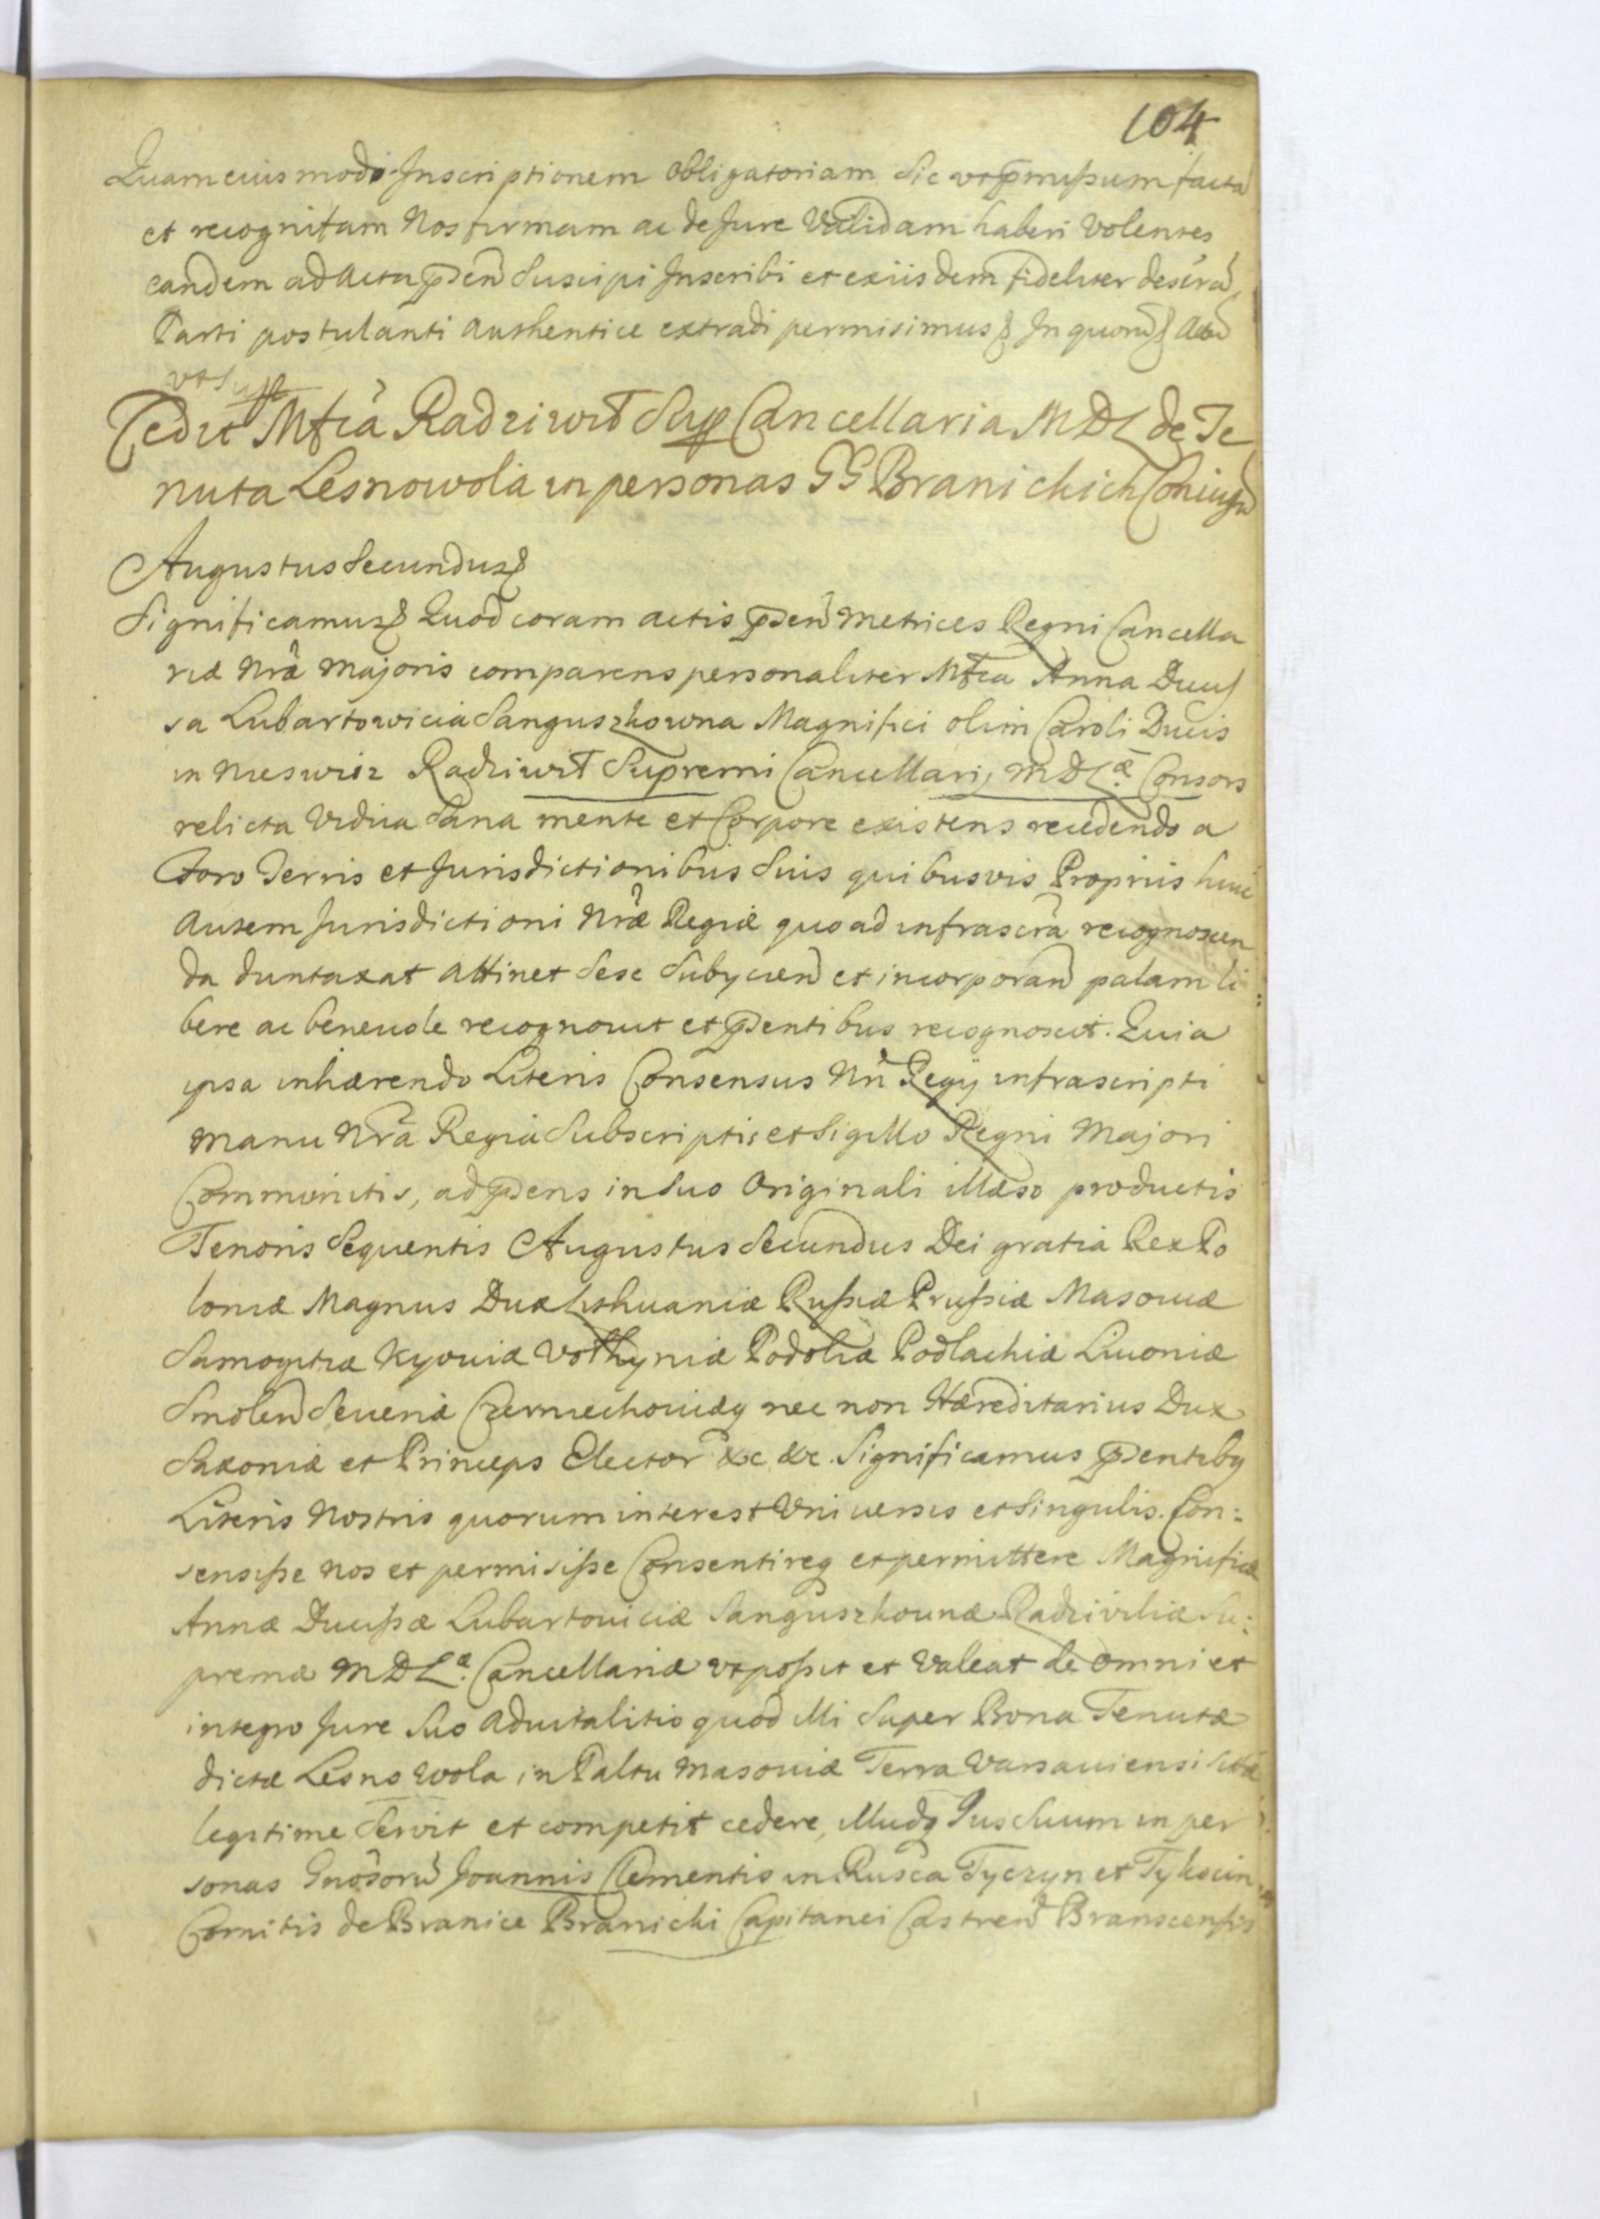 104
Quam eiusmodi Inscriptionem obligatoriam sic ut p̄missum facta
et recognitam Nos firmam ac de Jure Validam haberi Volentes
eandem ad Acta p̄sen̄ Suscipi Inscribi et ex iisdem fideliter descrā
Parti postulanti Authentice extradi permisimus In quorū Actū
ut Supp
Cedit Mfca Radziwił Sup Cancellaria MDL de Te
nuta Lesnowola in personas GG Branickich Coniugū
Augustus Secundus
Significamus Quod coram actis p̄sen̄ Metrices Regni Cancella
riæ Nræ Majoris comparens personaliter Mfca Anna Ducis
sa Lubartowicia Sanguszkowna Magnifici olim Caroli Ducis
in Nieswiez Radziwił Supremi Cancellarij MDLæ. Consors
relicta Vidua Sana mente et Corpore existens recedendo a
Foro Terris et Jurisdictionibus Suis quibusvis Propriis huic
Autem Jurisdictioni Nræ Regiæ quo ad infrascrā recognoscen
da duntaxat Attinet Sese Subÿcien̄ et incorporan̄ palam li:
bere ac beneuole recognouit et p̄sentibus recognoscit. Quia
ipsa inhærendo Literis Consensus Nrī Regÿ infrascripti
Manu Nrā Regia Subscriptis et Sigillo Regni Majori
Communitis, ad p̄sens in Suo Originali illæso productis
Tenoris Sequentis Augustus Secundus Dei gratia Rex Po
loniæ Magnus Dux Lithuaniæ Russiæ Prussiæ Masouiæ
Samogitiæ Kyouiæ Volhyniæ Podoliæ Podlachiæ Liuoniæ
Smolen̄ Seueriæ Czerniechouiæq nec non Hæreditarius Dux
Saxoniæ et Princeps Elector &c &c. Significamus p̄sentibq
Literis Nostris quorum interest Vniuersis et Singulis. Con:
sensisse Nos et permisisse Consentireq et permittere Magnificæ
Annæ Ducissæ Lubartouiciæ Sanguszkounæ Radziviliæ Su:
premæ MDLæ. Cancellariæ ut possit et Valeat de omni et
integro Jure Suo Aduitalitio quod illi Super Bona Tenutæ
dictæ Lesno Wola in Paltu Masouiæ Terra Varsauiensi Sitæ
legitime Servit et competit cedere, illudq Jus Suum in per
sonas Gnosorū Joannis Clementis in Rusca Tyczyn et Tykocin
Comitis de Branice Branicki Capitanei Castren̄ Branscensis